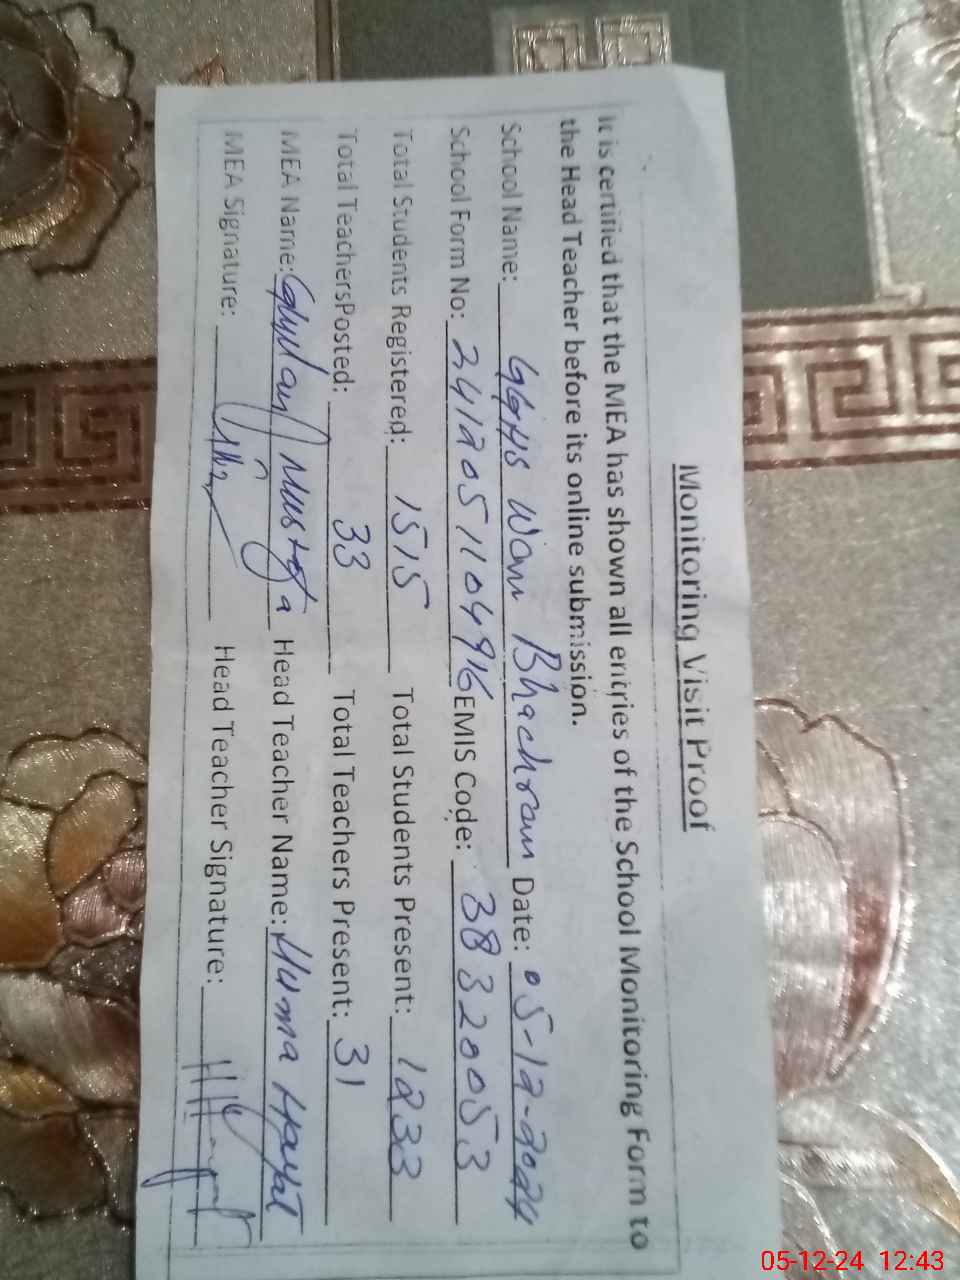 Monitoring Visit Proof
It is certified that the MEA has shown all entries of the School Monitoring Form to
the Head Teacher before its online submission.
School Name: GGHS Wan Bhachran Date: 05-12-2024
School Form No: 2412051104916 EMIS Code: 38320053
Total Students Registered: 1515 Total Students Present: 1233
Total TeachersPosted: 33 Total Teachers Present: 31
MEA Name: Ghulam Mustafa Head Teacher Name: Huma Hayat
MEA Signature: Head Teacher Signature:
05-12-24 12:43